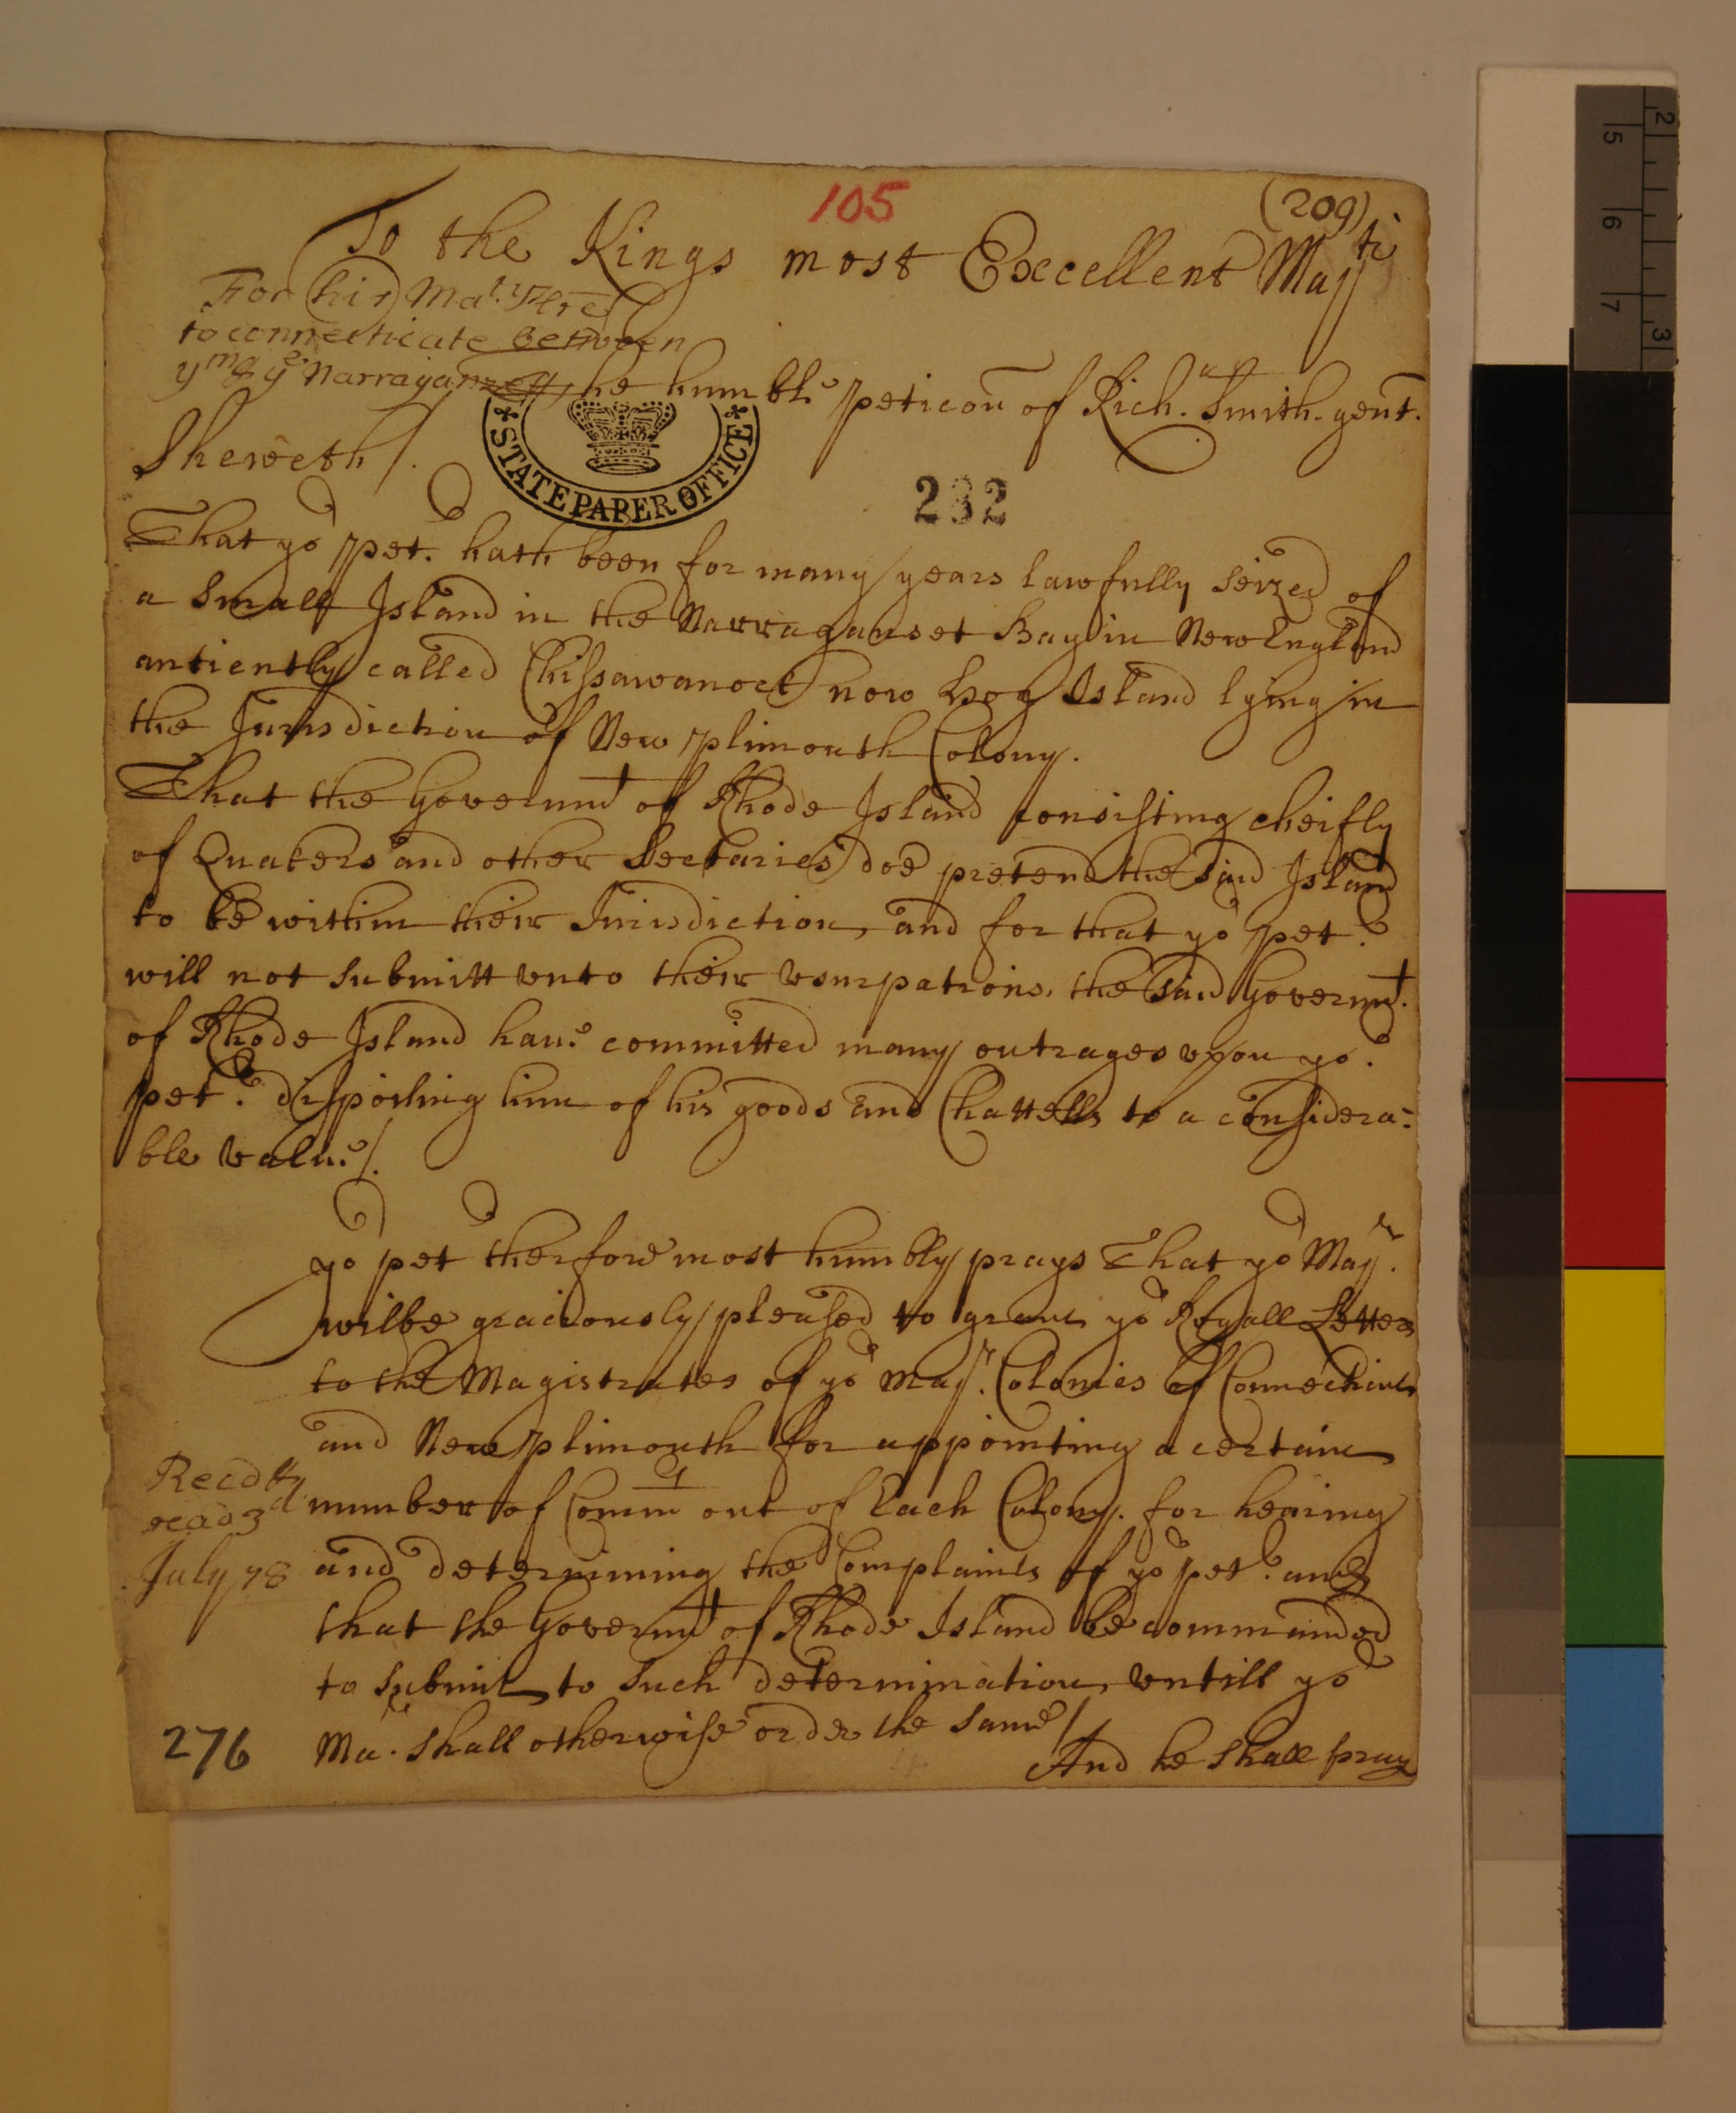 105
(209)
To the Kings most Excellent Majtie
For his Mats Lre
to connecticate between
ym & ye Narraganzett
The humble peticon of Richd Smith gent.
Sheweth/.
STATE PAPER OFFICE
232
That yor pet. hath been for many years lawfully seized of
a small Island in the Narraganset Bay in New England
antiently called Chissawanoct now Hog Island lying in
the Jurisdiction of New plimouth Colony.
That the Governmt of Rhode Island consisting cheifly
of Quakers and other Sectaries doe pretend the said Island
to be within their Jurisdiction, and for that yor petr
will not submitt vnto their vsurpations, the said Governmt.
of Rhode Island haue committed many outrages vpon yor
petr dispoiling him of his goods and Chattells to a considera=
ble value/.
yor pet therfore most humbly prays That yor Majtie
wilbe graciously pleased to grant yor Royall Letters
to the Magistrates of yor Majts Colonies of Connecticut
and New plimouth for appointing a certain
number of Commrs out of Each Colony. for hearing
and determining the Complaints of yor petr and
that the Governmt of Rhode Island be commanded
to submit to such determination, vntill yor
Matie shall otherwise order the same/
And he shall pray
Recd &
read 3d
July 78
276
2
3
5
6
7